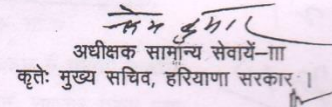 प्रेम कुमार
अधीक्षक सामान्य सेवायें-III
कृतेः मुख्य सचिव, हरियाणा सरकार ।